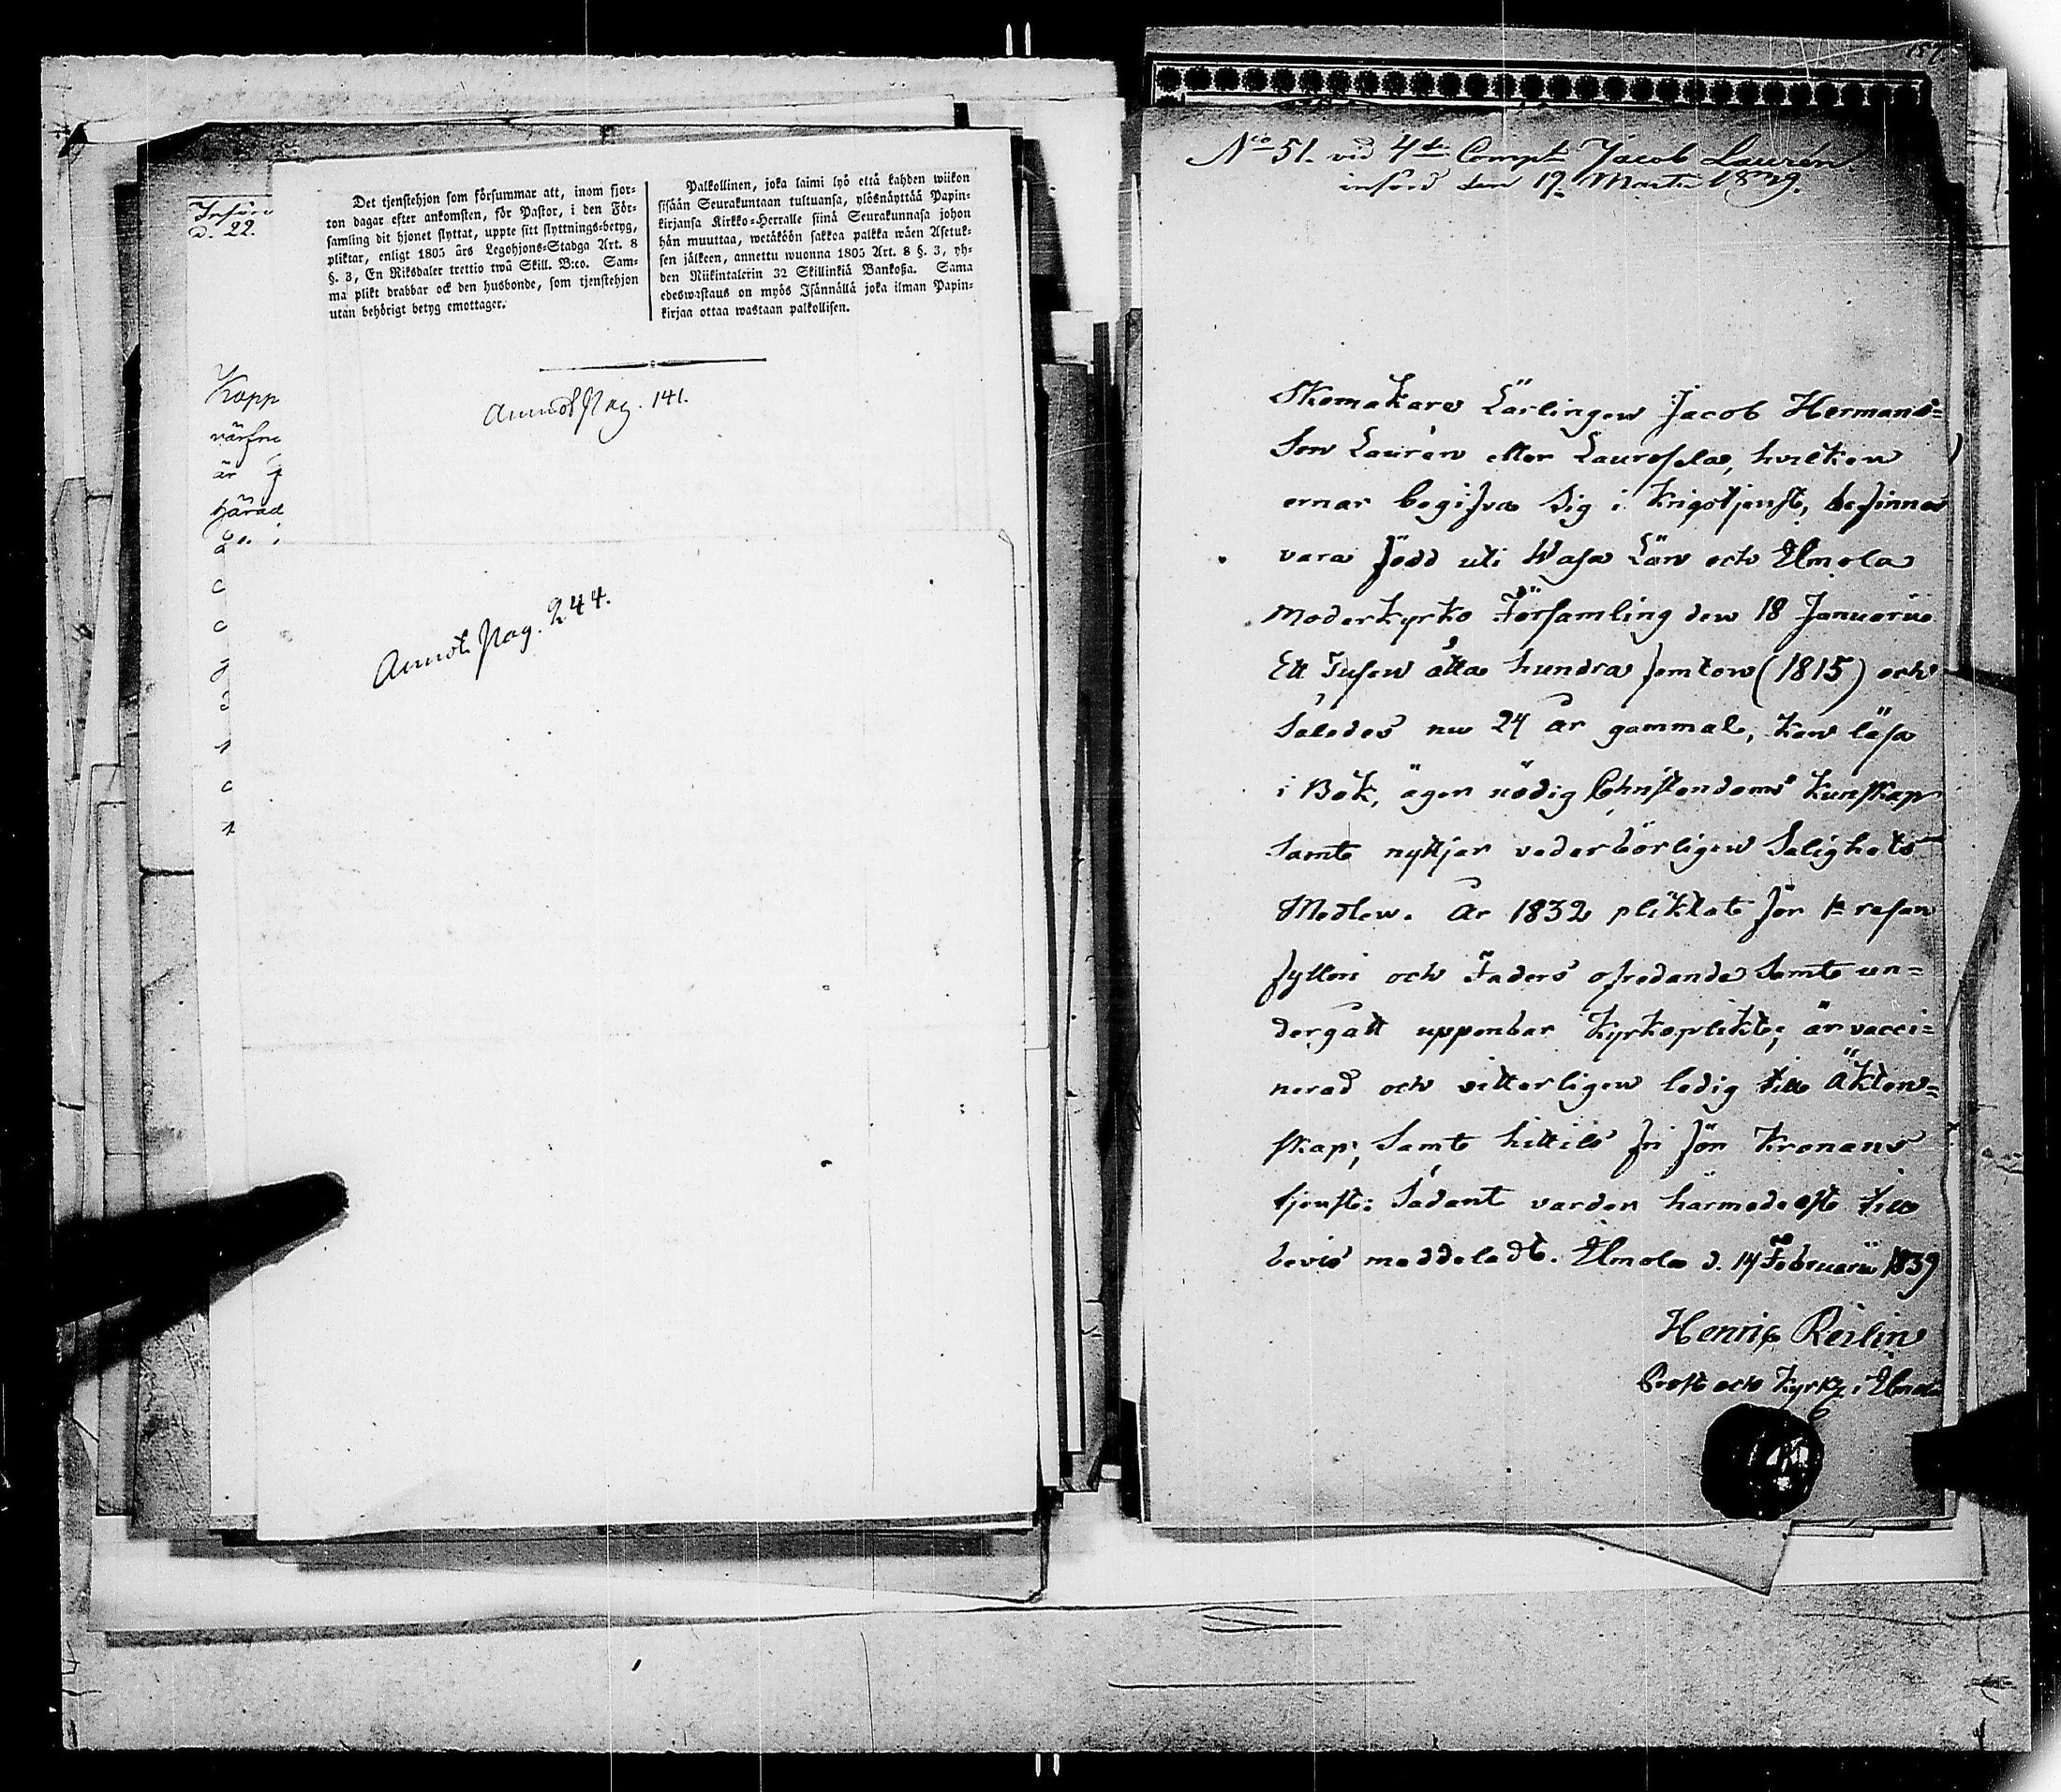 Införd
d. 22.
Det tjenstehjon som försummar att, inom fjor-
ton dagar efter ankomsten, för Pastor, i den För-
samling dit hjonet flyttat, uppte sitt flyttnings-betyg,
pliktar, enligt 1805 års Legohjons-Stadga Art. 8
§. 3, En Riksdaler trettio twå Skill. B:co. Sam-
ma plikt drabbar ock den husbonde, som tjenstehjon
utan behörigt betyg emottager.
Palkollinen, joka laimi lyö että kahden wiikon
sisään Seurakuntaan tultuansa, ylösnäyttää Papin-
kirjansa Kirkko-Herralle siinä Seurakunnasa johon
hän muuttaa, wetäköön sakkoa palkka wäen Asetuk-
sen jälkeen, annettu wuonna 1805 Art. 8 §. 3, yh-
den Riikintalerin 32 Skillinkiä Bankoßa. Sama
edeswastaus on myös Isännällä joka ilman Papin-
kirjaa ottaa wastaan palkollisen.
Annot. Pag. 141.
Kopp
värfne
är
härad
Annot. Pag. 244.
157
No 51. vid 4de Compt Jacob Laurén
införd den 19. Martii 1839.
Skomakare Lärlingen Jacob Hermans=
Son Laurén eller Laurosela, hvilken
ernar begifva sig i Krigstjenst, befinnes
vara född uti Wasa Län och Ilmola
Moderkyrko Församling den 18 Januarii
Ett Tusen åtta hundra femton (1815) och
Således nu 24 år gammal, kan läsa
i Bok, äger nödig Christendoms Kunskap
Samt nyttjar vederbörligen Salighets
Medlen. År 1832 pliktat för 1a resan
fylleri och Faders ofredande Samt un=
dergått uppenbar Kyrkoplikt; är vacci=
nerad och vitterligen ledig till Äkten=
skap; Samt hittils fri för Kronans
tjenst: Sådant varder härmedelst till
bevis meddeladt. Ilmola d. 14 Februarii 1839
Henric Reilin
Prost och Kyrkh. i Ilmola